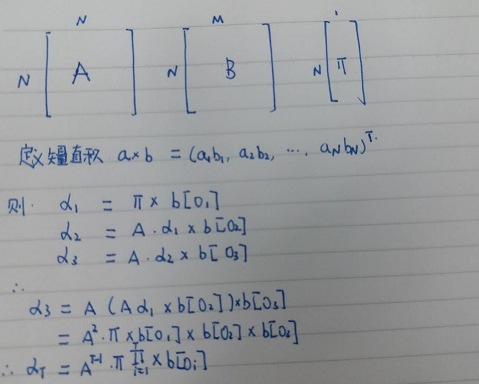 N M 1
N A N B N π
定义矢量直积 a×b = (a₁b₁, a₂b₂, ..., aNbN)ᵀ.
则. α₁ = π × b[O₁]
α₂ = A · α₁ × b[O₂]
α₃ = A · α₂ × b[O₃]
∴
α₃ = A (Aα₁ × b[O₂]) × b[O₃]
= A² · π × b[O₁] × b[O₂] × b[O₃]
∴ α_T = A^{T-1} · π ∏_{i=1}^{T} × b[Oᵢ]